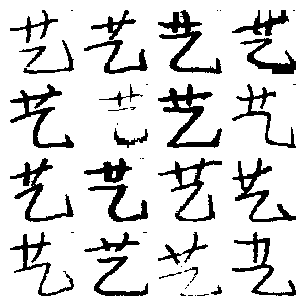 艺艺艺艺
艺艺艺艺
艺艺艺艺
艺艺艺艺